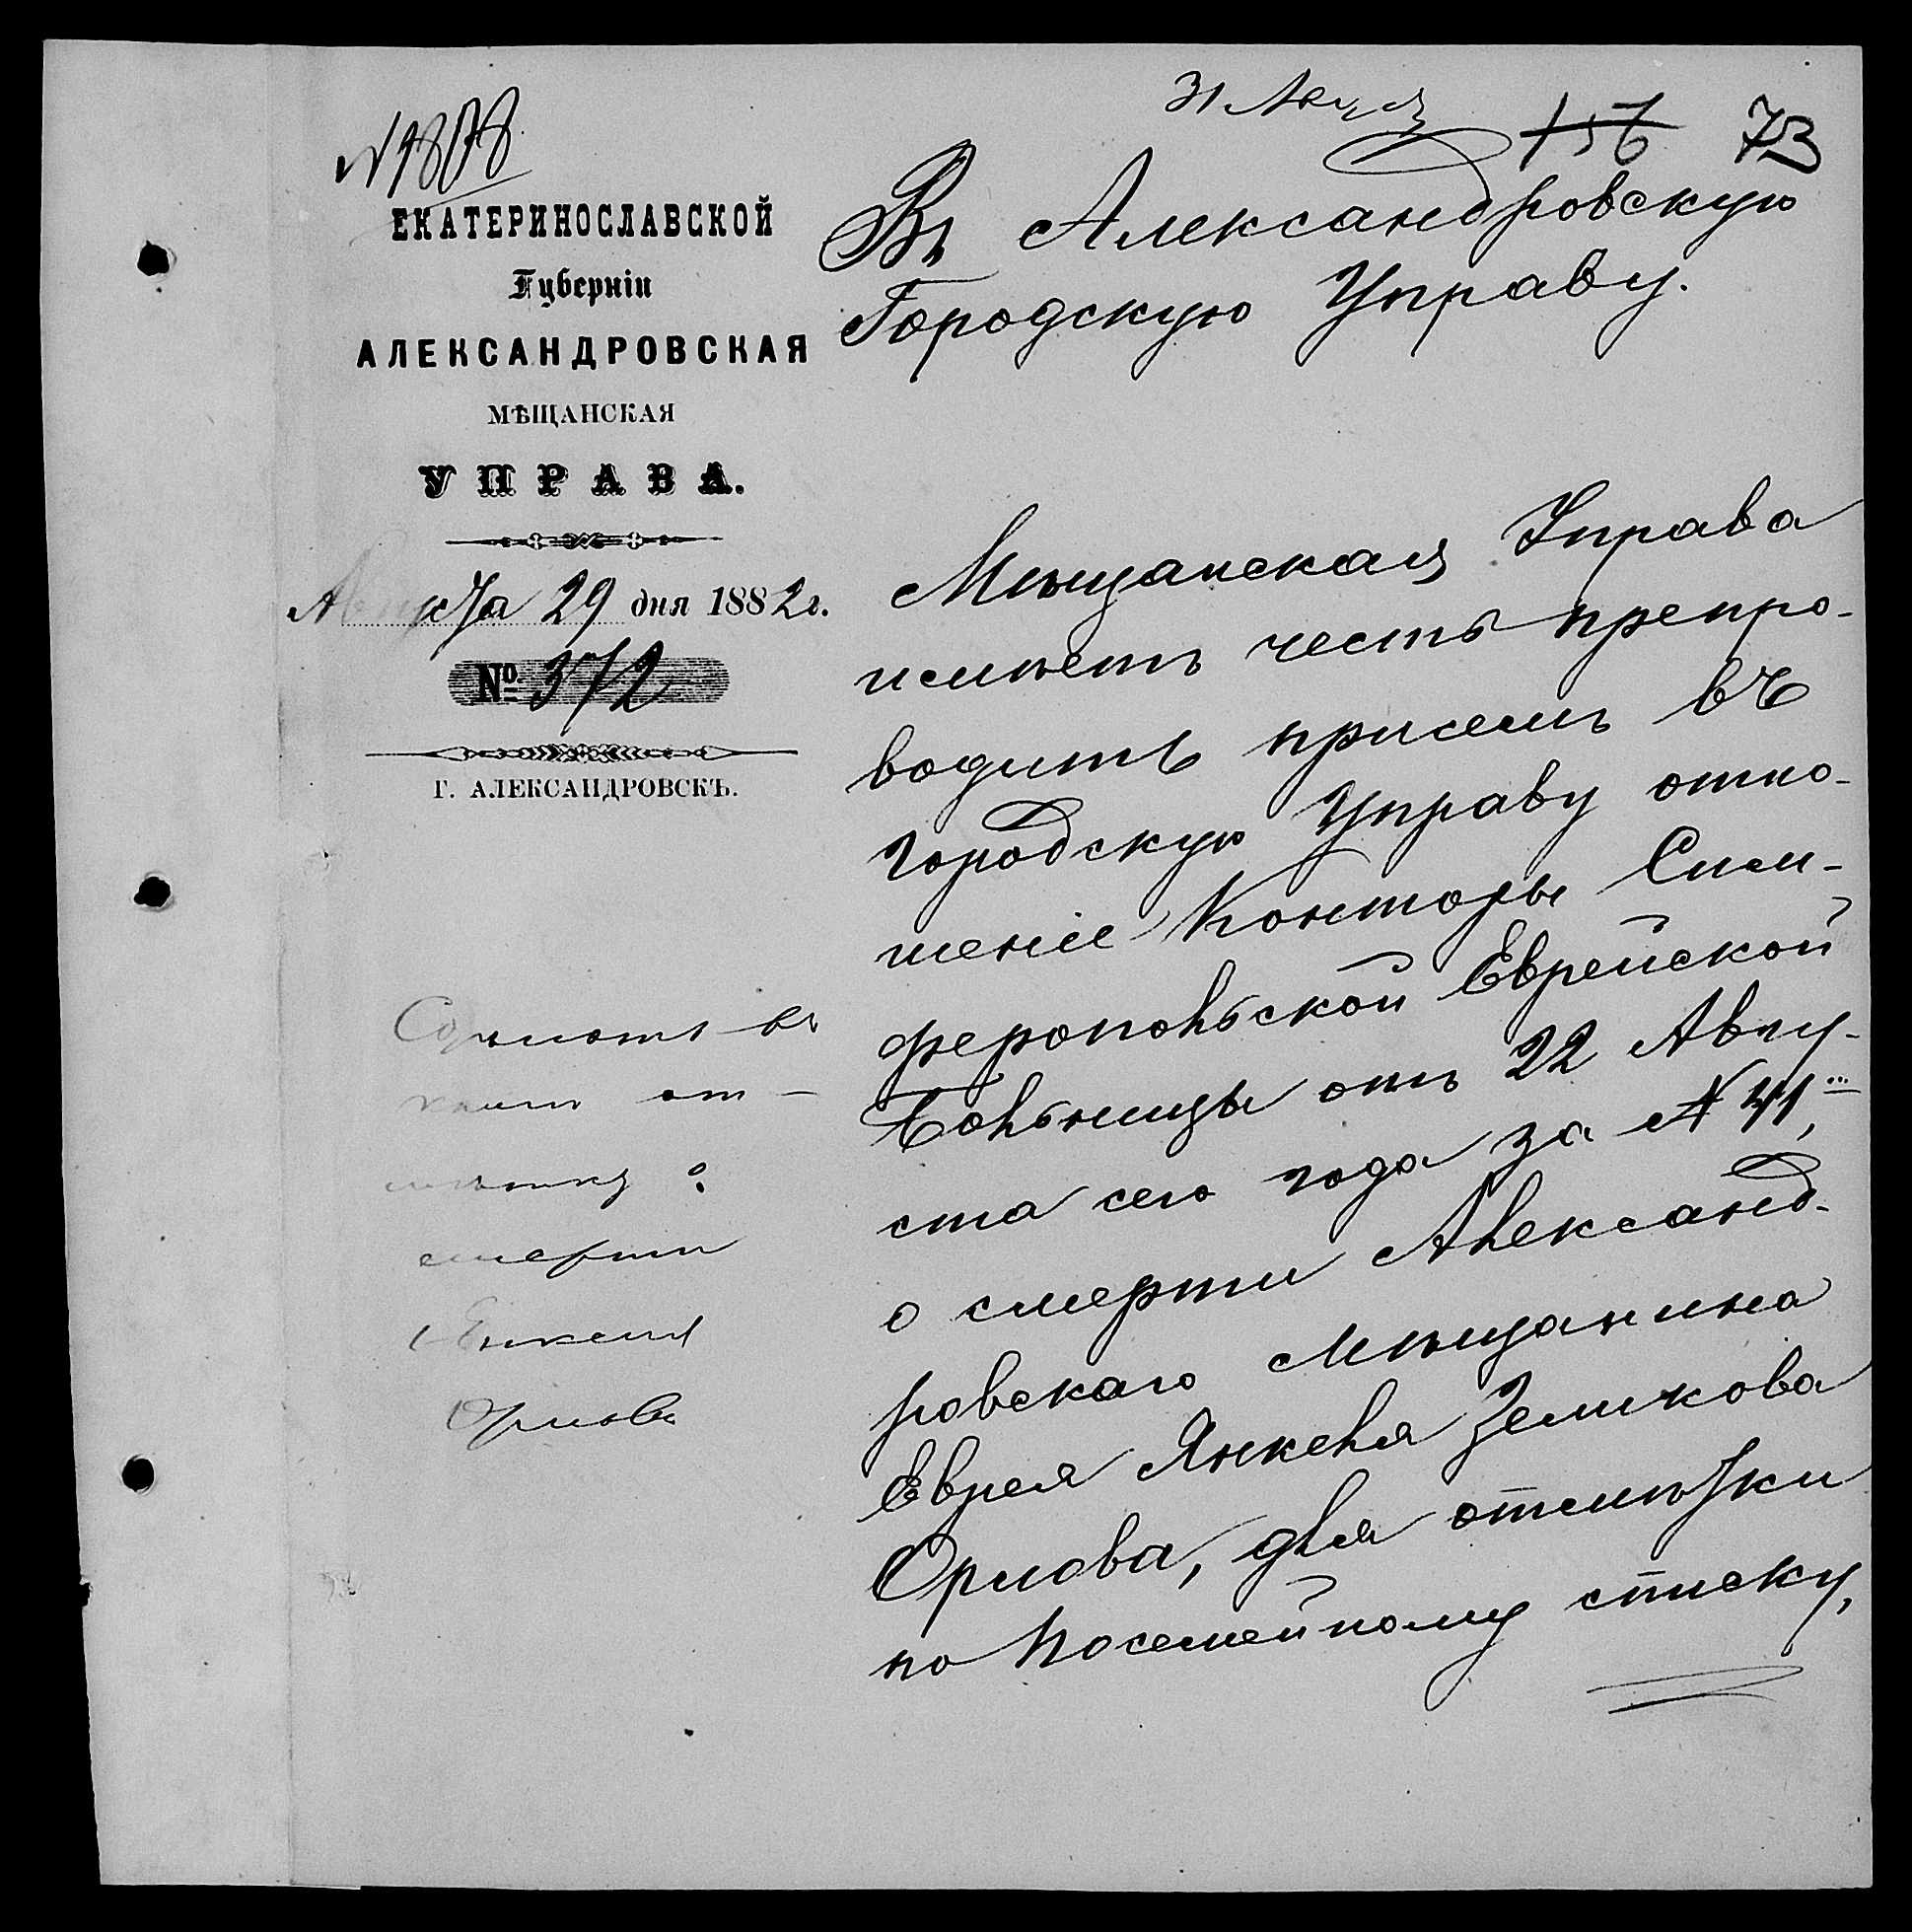 31 Авг
156 73
N 1878
ЕКАТЕРИНОСЛАВСКОЙ
Губерніи
АЛЕКСАНДРОВСКАЯ
МѢЩАНСКАЯ
УПРАВА.
Августа 29 дня 1882 г.
№ 372
Г. АЛЕКСАНДРОВСКЪ.
Въ Александровскую
Городскую Управу.
Мѣщанская Управа
имѣетъ честь препро-
водить присемъ въ
городскую Управу отно-
шеніе Конторы Сим-
феропольской Еврейской
Больницы отъ 22 Авгу-
ста сего года за N 41,
о смерти Александ-
ровскаго мѣщанина
Еврея Янкеля Зеликова
Орлова, для отмѣтки
по посемейному списку,
въ
от-
мѣтку о
смерти
Янкеля
Орлова